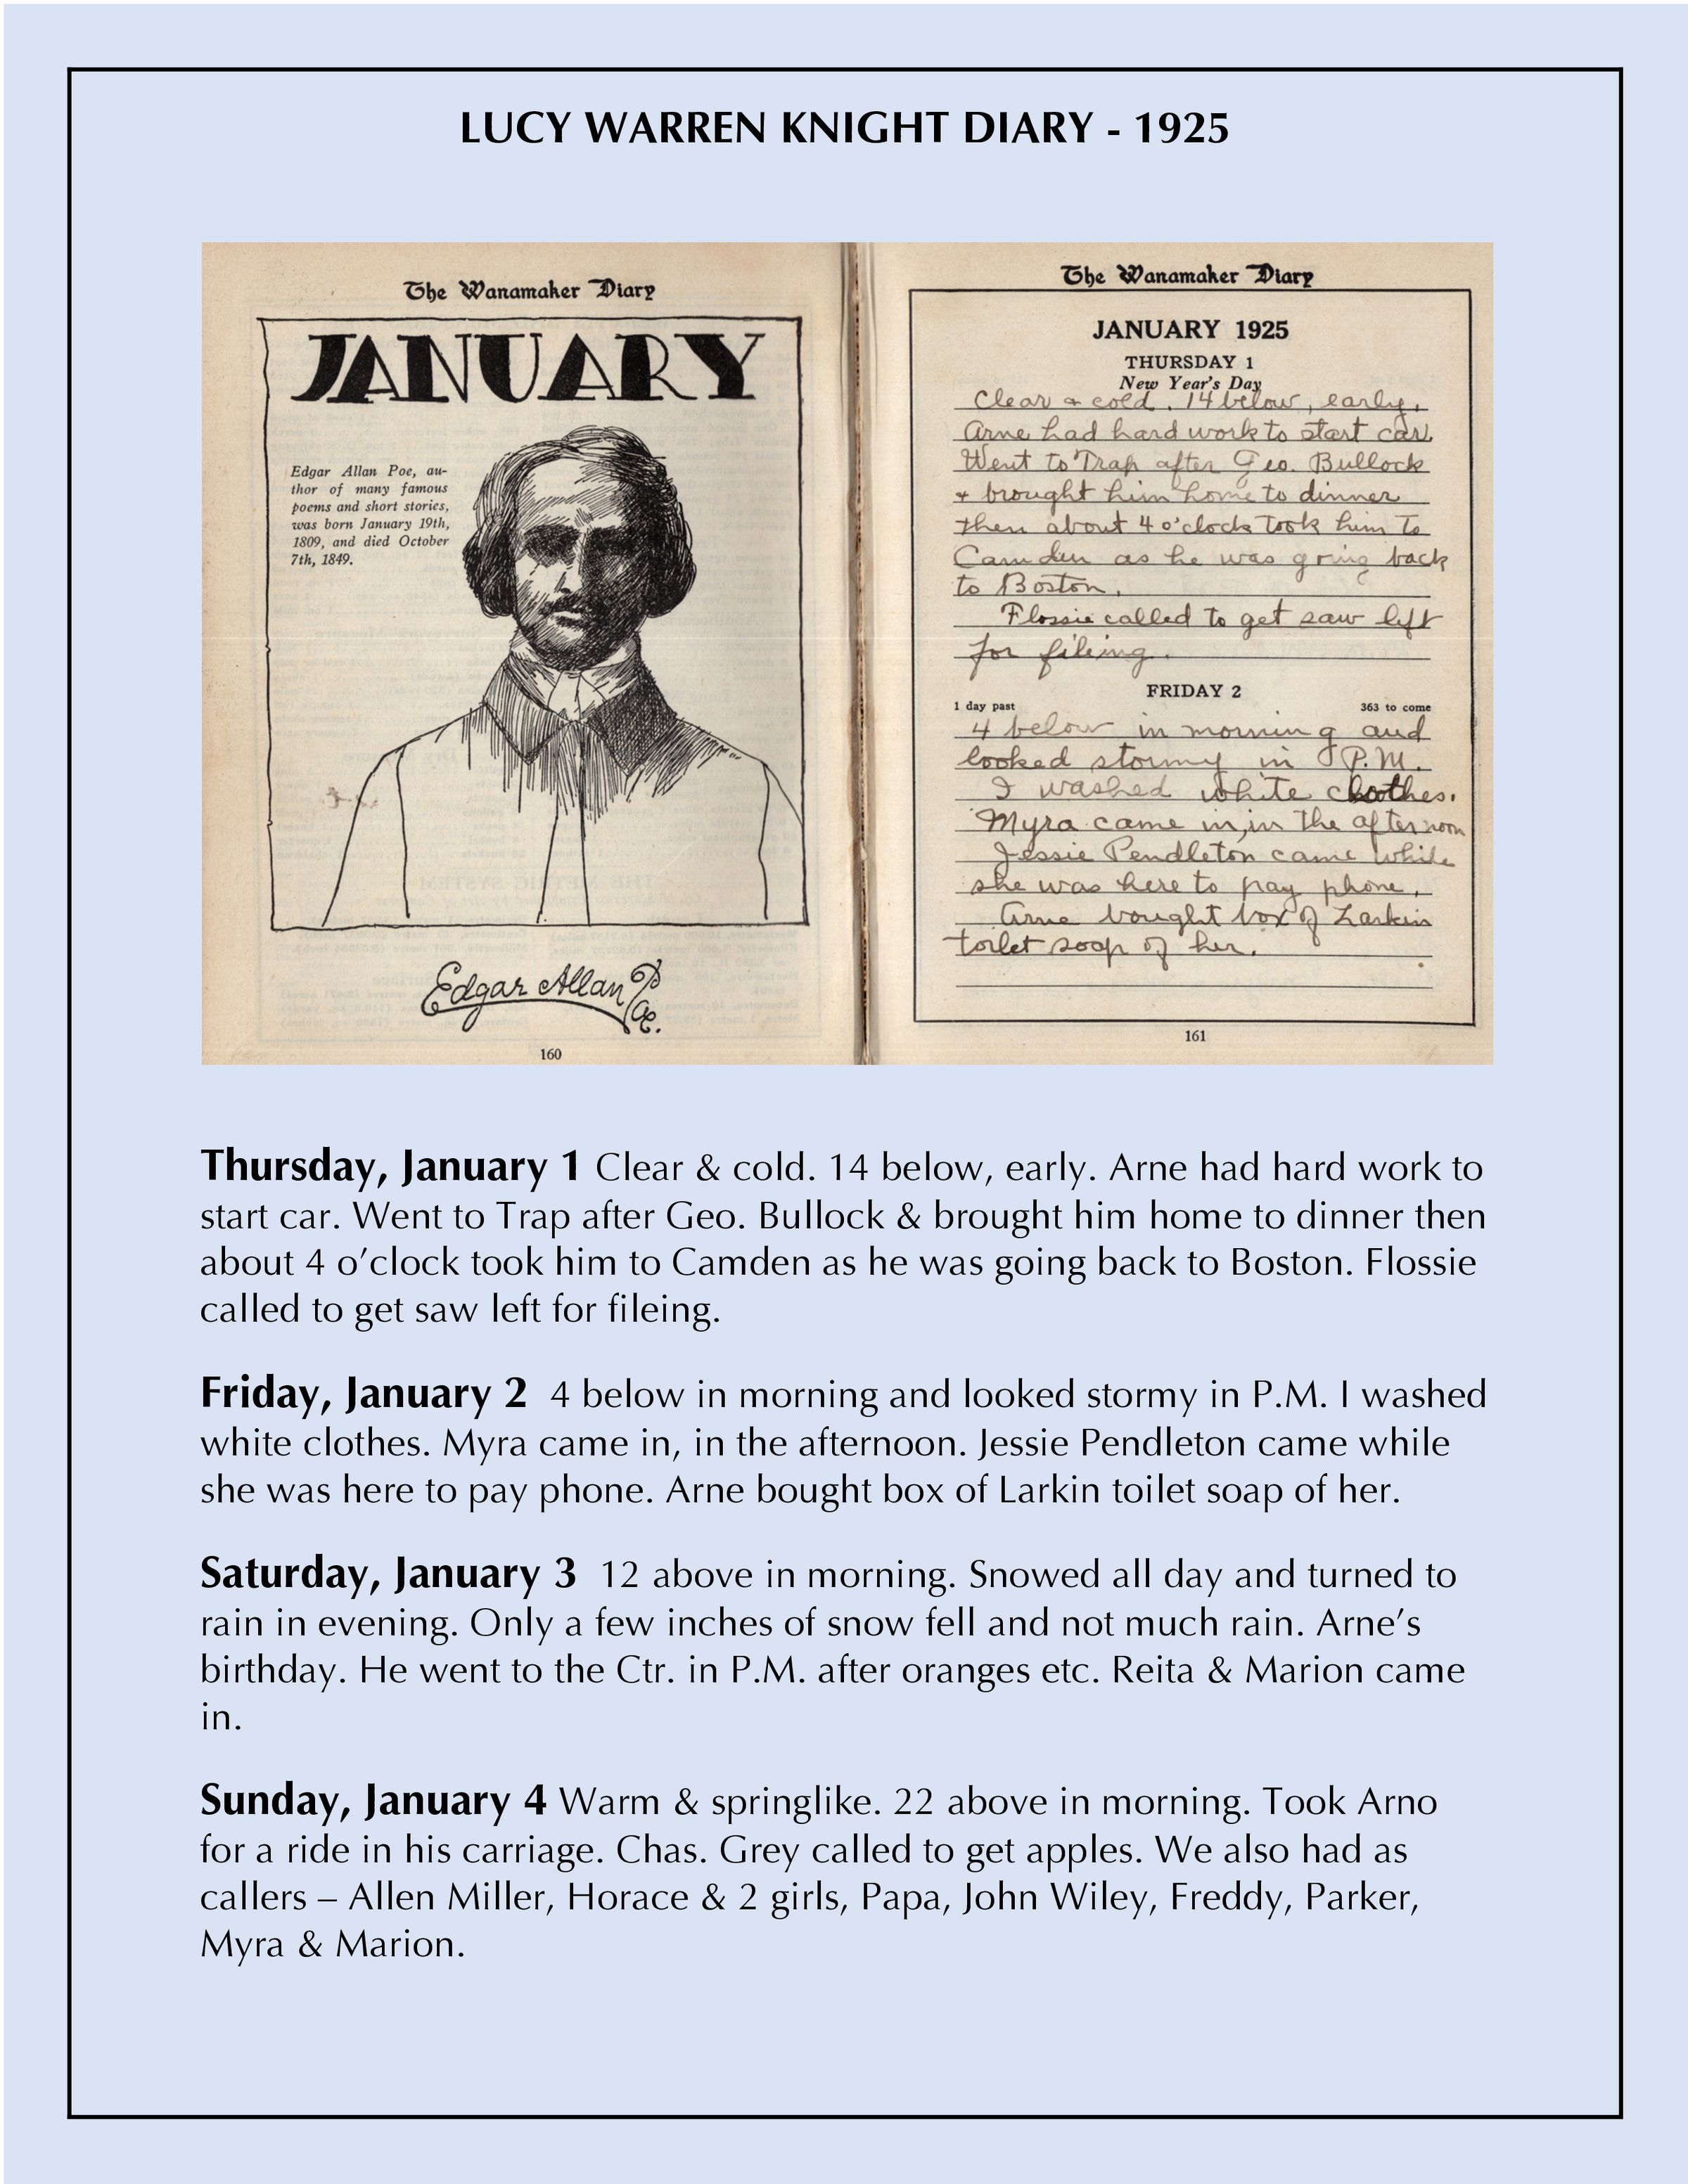 LUCY WARREN KNIGHT DIARY - 1925
The Wanamaker Diary
JANUARY
Edgar Allan Poe, au-
thor of many famous
poems and short stories,
was born January 19th,
1809, and died October
7th, 1849.
Edgar Allan Poe.
160
The Wanamaker Diary
JANUARY 1925
THURSDAY 1
New Year's Day
Clear & cold. 14 below, early.
Arne had hard work to start car.
Went to Trap after Geo. Bullock
& brought him home to dinner
then about 4 o'clock took him to
Camden as he was going back
to Boston.
Flossie called to get saw left
for fileing.
FRIDAY 2
1 day past 363 to come
4 below in morning and
looked stormy in P.M.
I washed white clothes.
Myra came in, in the afternoon
Jessie Pendleton came while
she was here to pay phone.
Arne bought box of Larkin
toilet soap of her.
161
Thursday, January 1 Clear & cold. 14 below, early. Arne had hard work to
start car. Went to Trap after Geo. Bullock & brought him home to dinner then
about 4 o’clock took him to Camden as he was going back to Boston. Flossie
called to get saw left for fileing.
Friday, January 2 4 below in morning and looked stormy in P.M. I washed
white clothes. Myra came in, in the afternoon. Jessie Pendleton came while
she was here to pay phone. Arne bought box of Larkin toilet soap of her.
Saturday, January 3 12 above in morning. Snowed all day and turned to
rain in evening. Only a few inches of snow fell and not much rain. Arne’s
birthday. He went to the Ctr. in P.M. after oranges etc. Reita & Marion came
in.
Sunday, January 4 Warm & springlike. 22 above in morning. Took Arno
for a ride in his carriage. Chas. Grey called to get apples. We also had as
callers – Allen Miller, Horace & 2 girls, Papa, John Wiley, Freddy, Parker,
Myra & Marion.